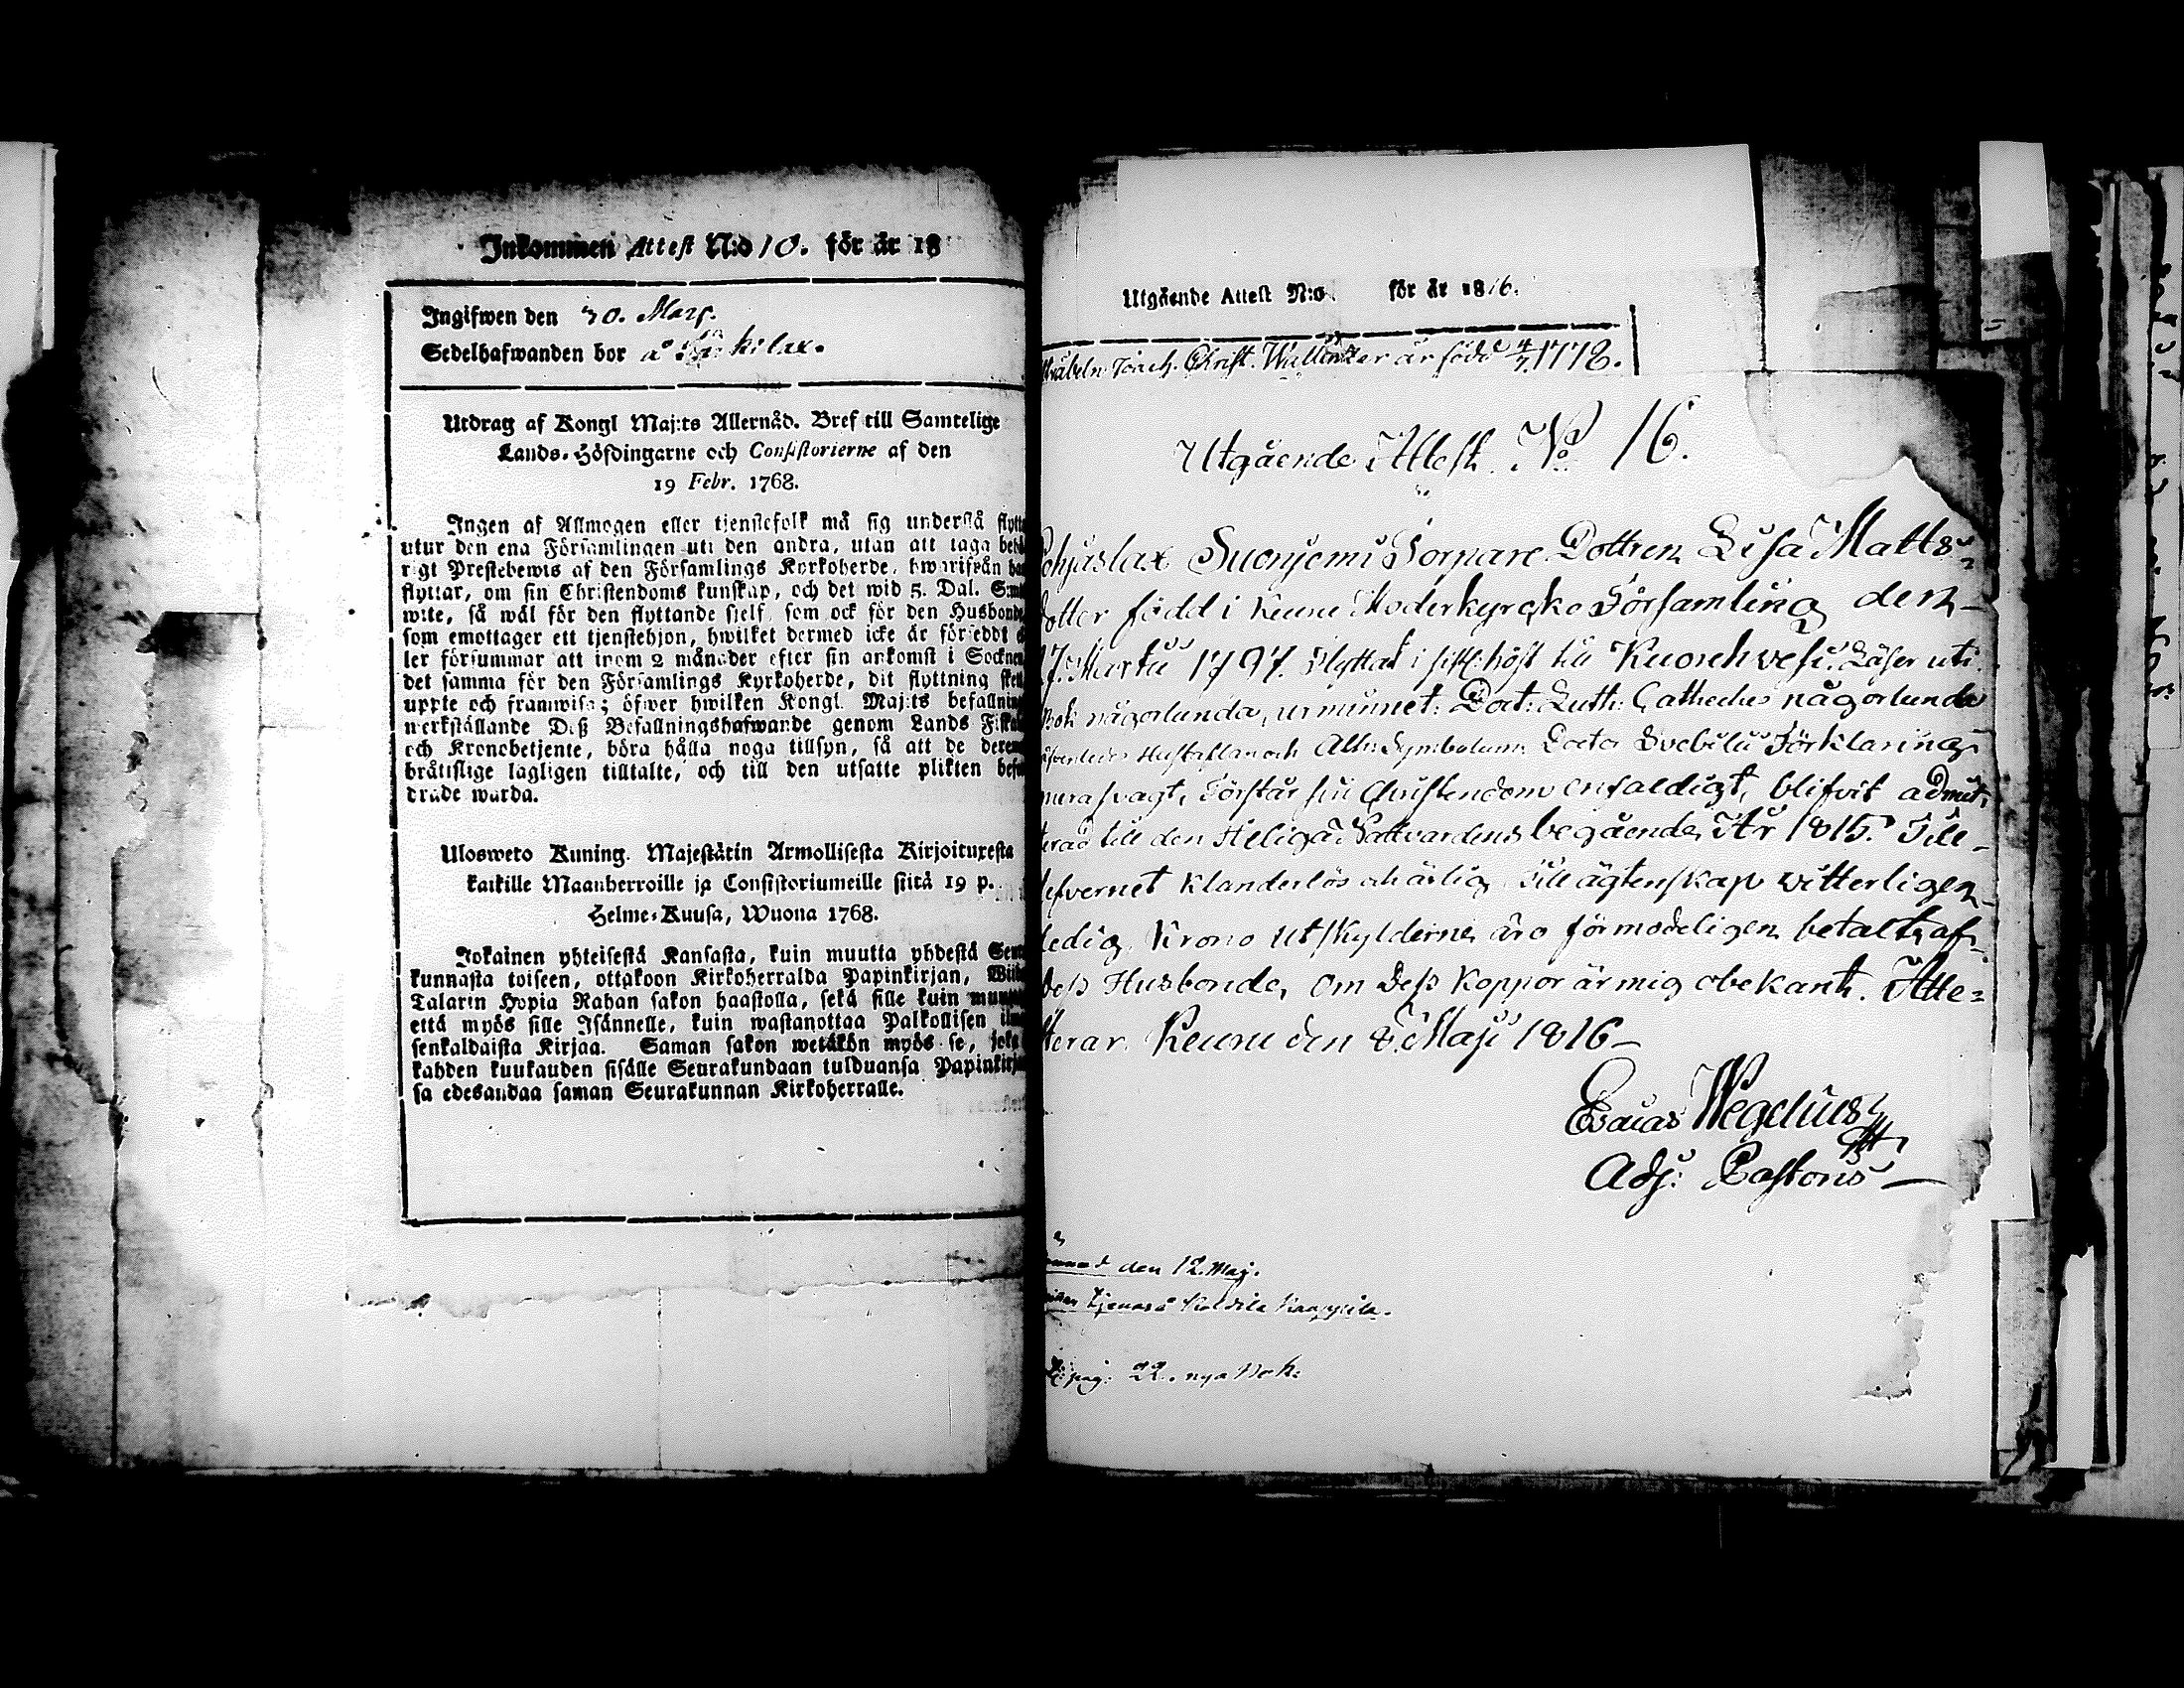 Inkommen Attest N:o 10. för år 18
Ingifwen den 30. Mars.
Sedelhafwanden bor å kilax.
Utdrag af Kongl Maj:ts Allernåd. Bref till Samtelige
Lands-Höfdingarne och Consistorierne af den
19 Febr. 1768.
Ingen af Allmogen eller tjenstefolk må sig understå flytt
utur den ena Församlingen uti den andra, utan att taga behö
rigt Prestebewis af den Församlings Kyrkoherde, hwarifrån han
flyttar, om sin Christendoms kunskap, och det wid 5. Dal. Smt
wite, så wäl för den flyttande sjelf, som ock för den Husbonde,
som emottager ett tjenstehjon, hwilket dermed icke är försedt e
ler försummar att inom 2 månader efter sin ankomst i Socknen
det samma för den Församlings Kyrkoherde, dit flyttning sked
uppte och framwisa; öfwer hwilken Kongl. Maj:ts befallning
werkställande Deß Befallningshafwande genom Lands Fiskal
och Kronobetjente, böra hålla noga tillsyn, så att de deremot
bråtislige lagligen tilltalte, och till den utsatte plikten befor
drade warda.
Ulosweto Kuning. Majestätin Armollisesta Kirjoituxesta
kaikille Maanherroille ja Consistoriumeille siitä 19 p.
Helme-Kuusa, Wuona 1768.
Jokainen yhteisestä Kansasta, kuin muutta yhdestä Seura
kunnasta toiseen, ottakoon Kirkoherralda Papinkirjan, Wiiden
Talarin Hopia Rahan sakon haastolla, sekä sille kuin muutta
että myös sille Isännelle, kuin wastanottaa Palkollisen ilman
senkaldaista Kirjaa. Saman sakon wetäkön myös se, joka
kahden kuukauden sisälle Seurakundaan tulduansa Papinkirjan
sa edesandaa saman Seurakunnan Kirkoherralle.
Utgående Attest N:o för år 1816.
Joach. Christ. är född 4/7 1778.
Utgående Attest No 16.
Pohjaslax Suonjemi Torpare Dottren Lisa Matts-
dotter född i Keuru Moderkyrcko Församling den
27. Martii 1797. Flyttat i sistl. höst till Kuorehvesi. Läser uti
Bok någorlunda, ur minnet: Doct: Luth: Catheches någorlunda
Hustaflan och Ath: Symbolum, Doctor Svebilii Förklaring
mera svagt, Förstår sin Christendom enfaldigt, blifvit admit-
terad till den Heliga Nattvardens begående År 1815. Till-
lefvernet klanderlös och ärlig, Till ägtenskap witterligen
ledig, Krono Utskylderne äro förmodeligen betalt af
dess Husbonde, Om dess Koppor är mig obekant. Atte-
sterar. Keuru den 8. Maji 1816
Esaias Wegelius
Adj: Pastoris
den 12. Maj.
tjenar å
pag: 22. nya Bok.